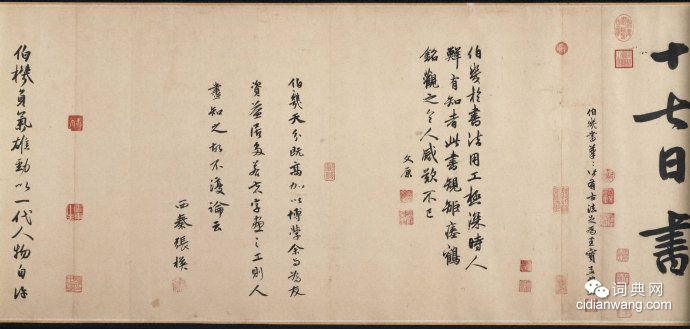 十七日書
伯幾書筆〻皆有古法足為至寶 孟
伯幾於書法用工極深時人
鮮有知者此書規矩瘞鶴
銘觀之令人感歎不已
文原
伯幾天分既高加以博學余與為友
資益居多若其字畫之工則人
盡知之故不復論云
西秦張楧
伯機負氣雄勁以一代人物自許
词典网
cidianwang.com